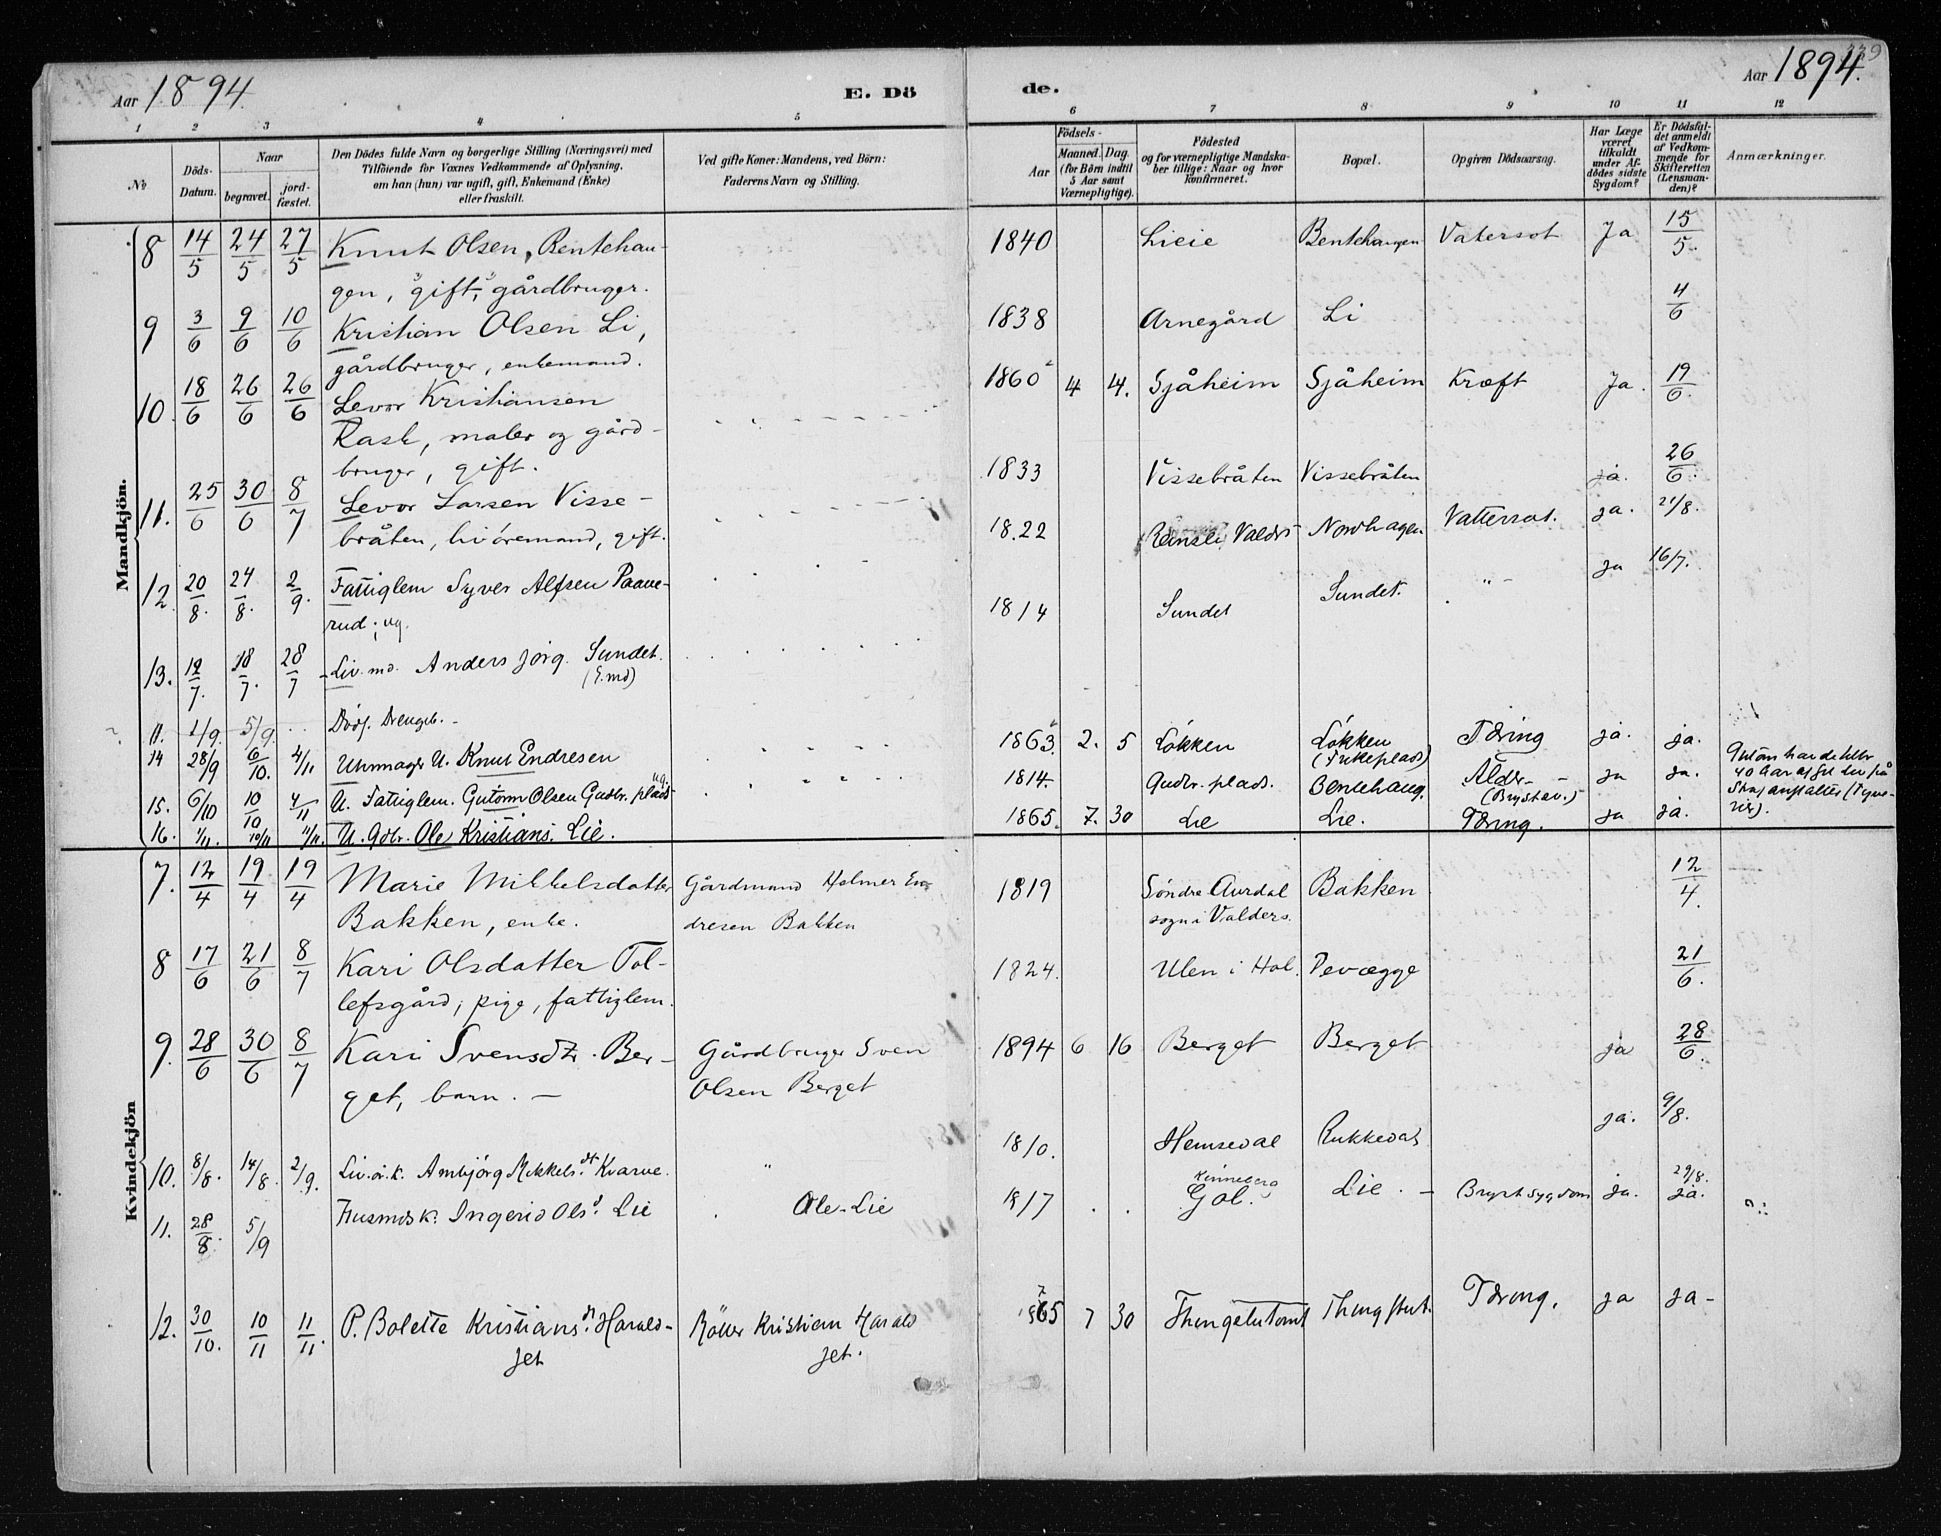 Aar 1894.
E. Dö
de.
Aar 1894.
339
1 2 3 4 5 6 7 8 9 10 11 12
№
Döds-
Datum.
Naar
begravet.
jord-
fæstet.
Den Dödes fulde Navn og borgerlige Stilling (Næringsvei) med
Tilföiende for Voxnes Vedkommende af Oplysning,
om han (hun) var ugift, gift, Enkemand (Enke)
eller fraskilt.
Ved gifte Koner: Mandens, ved Börn:
Faderens Navn og Stilling.
Födsels-
Aar
Maaned. Dag.
(for Börn indtil
5 Aar samt
Værnepligtige).
Födested
og for værnepligtige Mandska-
ber tillige: Naar og hvor
konfirmeret.
Bopæl.
Opgiven Dödsaarsag.
Har Læge
været
tilkaldt
under Af-
dödes sidste
Sygdom?
Er Dödsfal-
det anmeldt
af Vedkom-
mende for
Skifteretten
(Lensman-
den)?
Anmærkninger.
Mandkjön.
8 14/5 24/5 27/5 Knut Olsen, Bentehau- 1840 Lieie Bentehaugen Vatersot Ja 15/5.
gen, gift, gårdbruger.
9 3/6 9/6 10/6 Kristian Olsen Li, 1838 Arnegård Li 4/6
gårdbruger, enkemand.
10. 18/6 26/6 26/6 Levor Kristiansen 1860 4 4. Sjåheim Sjåheim Kræft Ja. 19/6.
Rask, maler og gård-
bruger, gift.
11. 25/6 30/6 8/7 Levor Larsen Visse- 1833 Vissebråten Vissebråten ja. 26/6.
bråten, livöremand, gift.
12. 20/8. 24/8. 2/9. Fattiglem Syver Alfsen Paave- 1822 Valdrs Nordhagen Vattersot. ja. 21/8.
rud; ug.
13. 12/7. 18/7. 28/7 Liv.md. Anders Jörg. Sundet. 1814 Sundet Sundet. " ja 16/7.
(E.md)
11. 1/9. 5/9. Dödf. Drengeb. -
14 28/9 6/10. 4/11 Uhrmager U. Knut Endresen 1863. 2. 5 Lökken Lökken Tæring ja. ja.
(Trikeplads)
15. 6/10 10/10 4/11 U. Fattiglem. Gutorm Olsen Gudbr. plads ug. 1814. Gudbr. plads. Bentehaug. Aldr. - ja ja.
(Brystav.)
Gutorm har dehlbr
40 Aar afset der på
Strafanstalter (Tyve-
rier).
16. 1/11. 10/11 11/11. U. Gdbr. Ole Kristians. Lie. 1865. 7. 30 Lie Lie. Tæring. ja ja.
Kvindekjön
7. 12/4 19/4 19/4 Marie Mikkelsdatter Gårdmand Holmer En- 1819 Söndre Aurdal Bakken 12/4.
Bakken, enke. dresen Bakken sogn i Valders.
8 17/6 21/6 8/7 Kari Olsdatter Tol- 1824. Ulen i Hol. Pevægge 21/6.
lefsgård, pige, fattiglem.
9. 28/6 30/6 8/7 Kari Svensdtr. Ber- Gårdbruger Sven 1894 6 16 Berget Berget ja 28/6.
get, barn. - Olsen Berget
10. 8/8. 14/8. 2/9. Liv.ör.k. Ambjörg Mikkels.dt. Kvarve. " 1810. Hemsedal Rukkedal ja. 9/8.
11. 28/8. 5/9 Husmds k. Ingerid Ols.d Lie Ole Lie 1817 Gol. Lie. - Brystsygdom ja. 29/8. ja.
12. 30/10. 10/11 11/11. P. Bolette Kristians.dt. Harald- Röller Kristian Harald 1865 7 30 Thingelstomt Thingstut. Tæring. ja ja-
set set.